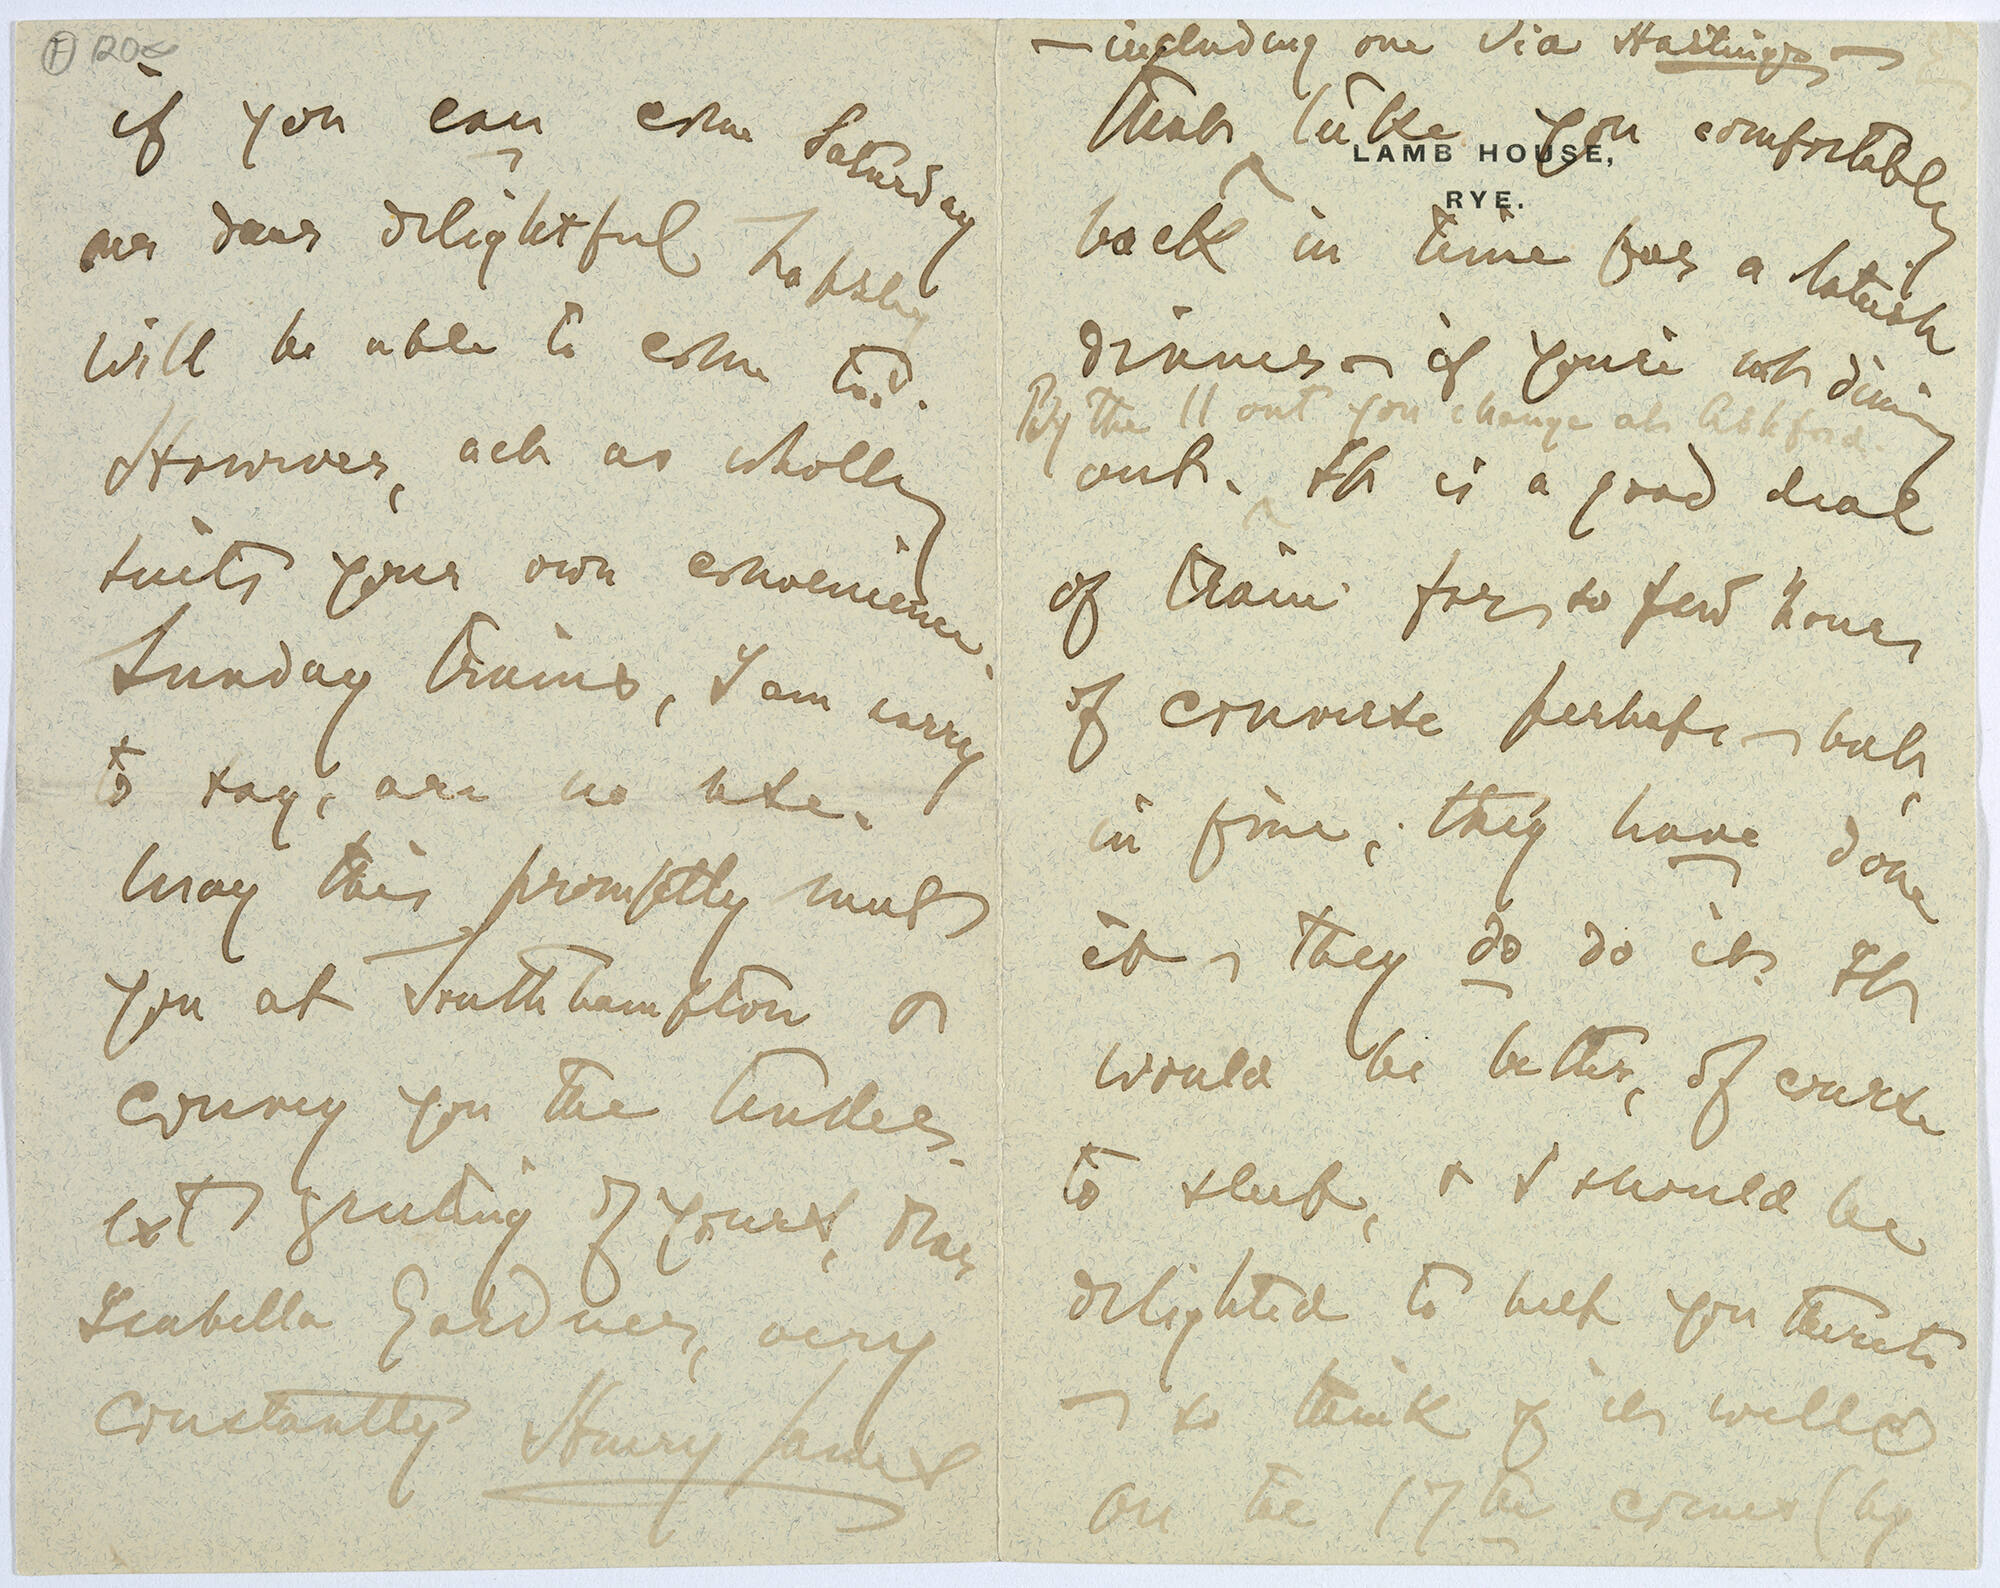 if you can come Saturday
our dear delightful Lapsley
will be able to come too.
However, act as wholly
suits your own convenience.
Sunday trains, I am sorry
to say, are no use.
May this promptly meet
you at Southampton &
convey you the tender-
est greeting of yours, dear
Isabella Gardner, very
constantly Henry James
— including one via Hastings —
that take you comfortably
LAMB HOUSE,
RYE.
back in time for a latish
dinner — if you're not dining
By the 11 out you change at Ashford.
out. It is a good deal
of train for so few hours
of converse perhaps — but,
in fine, they have done
it — they do do it. It
would be better, of course
to sleep, & I should be
delighted to help you thereto
— so think of it well
on the 17th comes (by